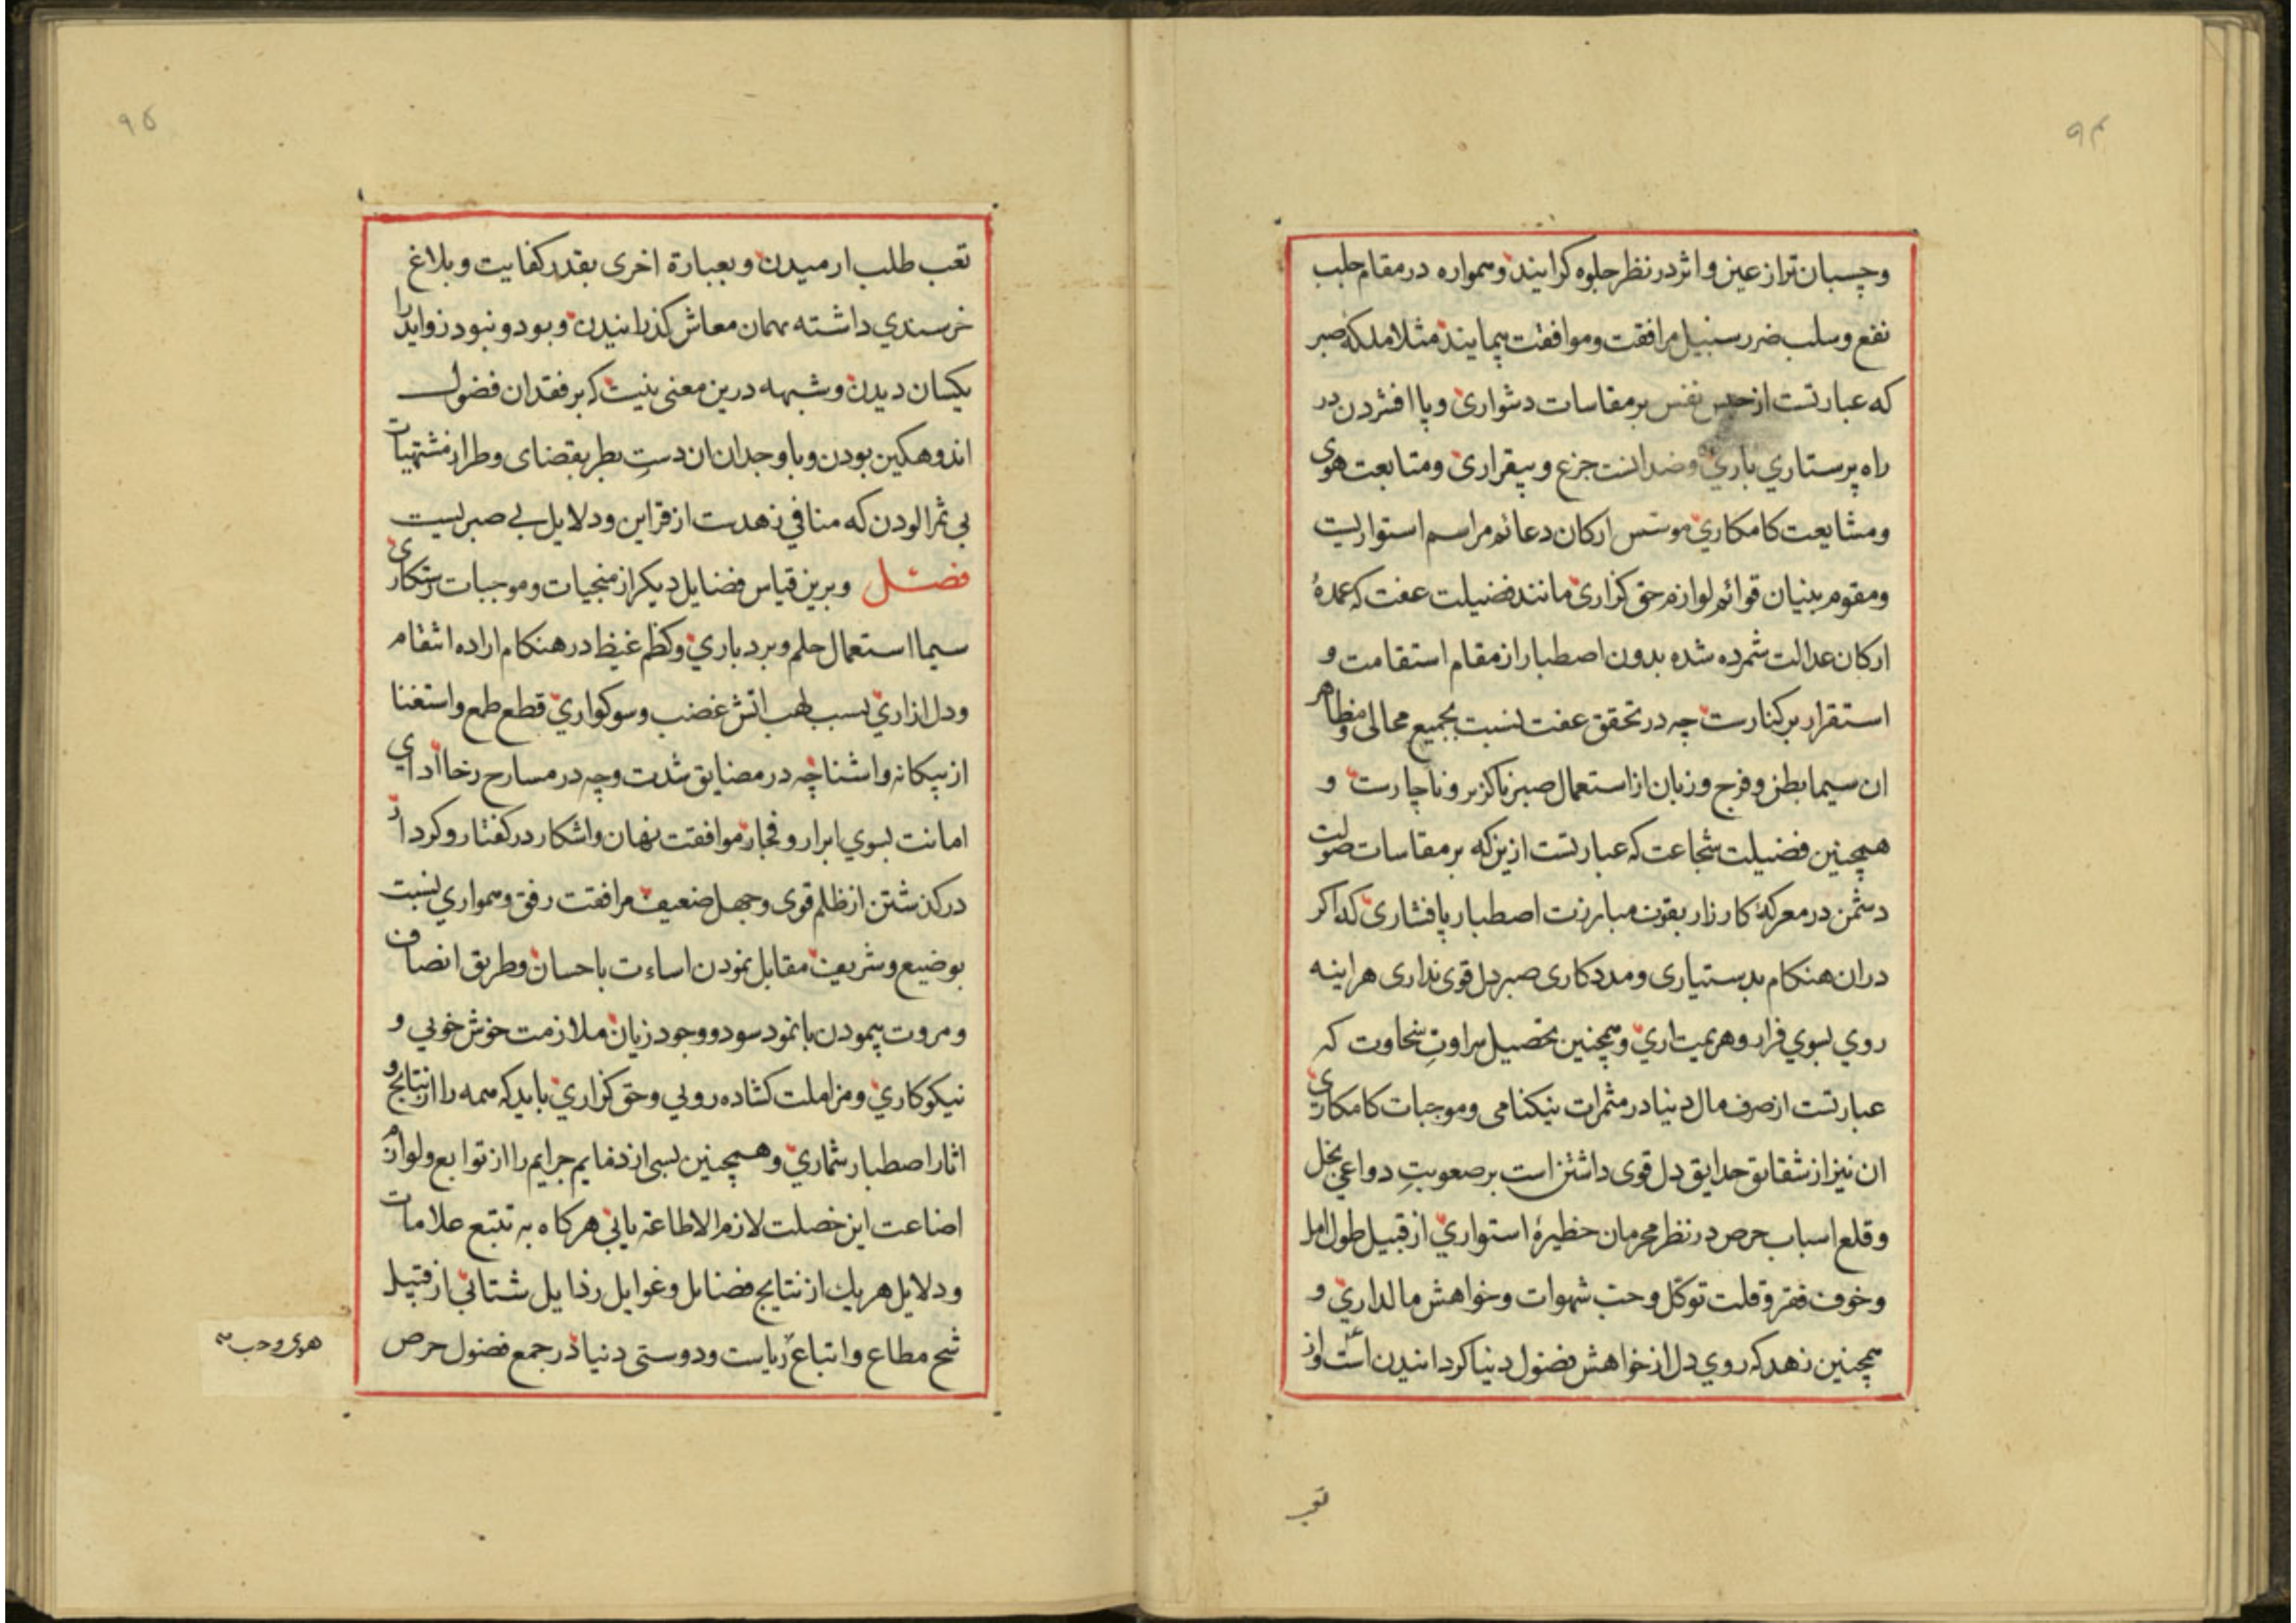 ۹۴
وچسبان تر از عین و اثر در نظر جلوه کرایند و همواره در مقام جلب
نفع وسلب ضرر سبیل مرافقت وموافقت پیمایند مثلا ملکه صبر
که عبارتست از حبس نفس بر مقاسات دشواری و پا افشردن در
راه پرستاري باري وضد انست جزع و بیقراری ومتابعت هوی
ومشایعت کامکاري موسّس ارکان دعائم مراسم استواریست
ومقوم بنیان قوائم لوازم حق کزاری مانند فضیلت عفت که عمدهٔ
ارکان عدالت شمرده شده بدون اصطبار از مقام استقامت و
استقرار بر کنارست چه در تحقق عفت نسبت بجمیع محالی ومظاهر
ان سیما بطن وفرج وزبان از استعمال صبر ناکزیر وناچارست و
همچنین فضیلت شجاعت که عبارتست ازین که بر مقاسات صولت
دشمن در معرکهٔ کارزار بقوت مبارزت اصطبار پا فشاری که اکر
دران هنکام بدستیاری ومددکاری صبر دل قوی نداری هراینه
روي بسوي فرار وهزیمت اري وهمچنین تحصیل سراوتِ سخاوت که
عبارتست از صرف مال دنیا در مثمرات نیکنامی وموجبات کامکاری
ان نیز از شقائق حدایق دل قوی داشتن است بر صعوبتِ دواعي بخل
وقلع اسباب حرص در نظر محرمان حظیرهٔ استواري از قبیل طول امل
وخوف فقر وقلت توکّل وحب شهوات وخواهش مالداري و
همچنین زهد که روي دل از خواهش فضول دنیا کردانیدن است واز
تعب
۹۵
تعب طلب ارمیدن و بعبارة اخری بقدر کفایت و بلاغ
خرسندي داشته مهمان معاش کذرانیدن و بود و نبود زواید را
یکسان دیدن وشبهه درین معنی نیست که بر فقدان فضول
اندوهکین بودن وبا وجدان ان دستِ بطر بقضای وطر از مشتهیات
بی ثمر الودن که منافي زهدست از قراین ودلایل بے صبریست
فصل وبرین قیاس فضایل دیکر از منجیات وموجبات رستکاری
سیما استعمال حلم وبردباري وکظم غیظ در هنکام اراده انتقام
ودل ازاري بسبب لهب اتش غضب وسوکواري قطع طمع واستغنا
از بیکانه واشنا چه در مضایق شدت وچه در مسارح رخا ادای
امانت بسوي ابرار و فجار موافقت نهان واشکار در کفتار وکردار
درکذشتن از ظلم قوی وجهل ضعیف مرافقت رفق وهمواري نسبت
بوضیع وشریف مقابل نمودن اساءت باحسان وطریق انصاف
ومروت پیمودن با نمود سود ووجود زیان ملازمت خوش خوئي و
نیکوکاري ومزاملت کشاده روئي وحق کزاري باید که همه را از نتایج و
اثار اصطبار شماري وهمچنین بسی از ذمایم جرایم را از توابع ولوازم
اضاعت این خصلت لازم الاطاعة یابي هرکاه به تتبع علامات
ودلایل هریك از نتایج فضائل وغوایل رذایل شتائي از قبیل
شح مطاع واتباع ریاست ودوستی دنیا در جمع فضول حرص
هوی وحب